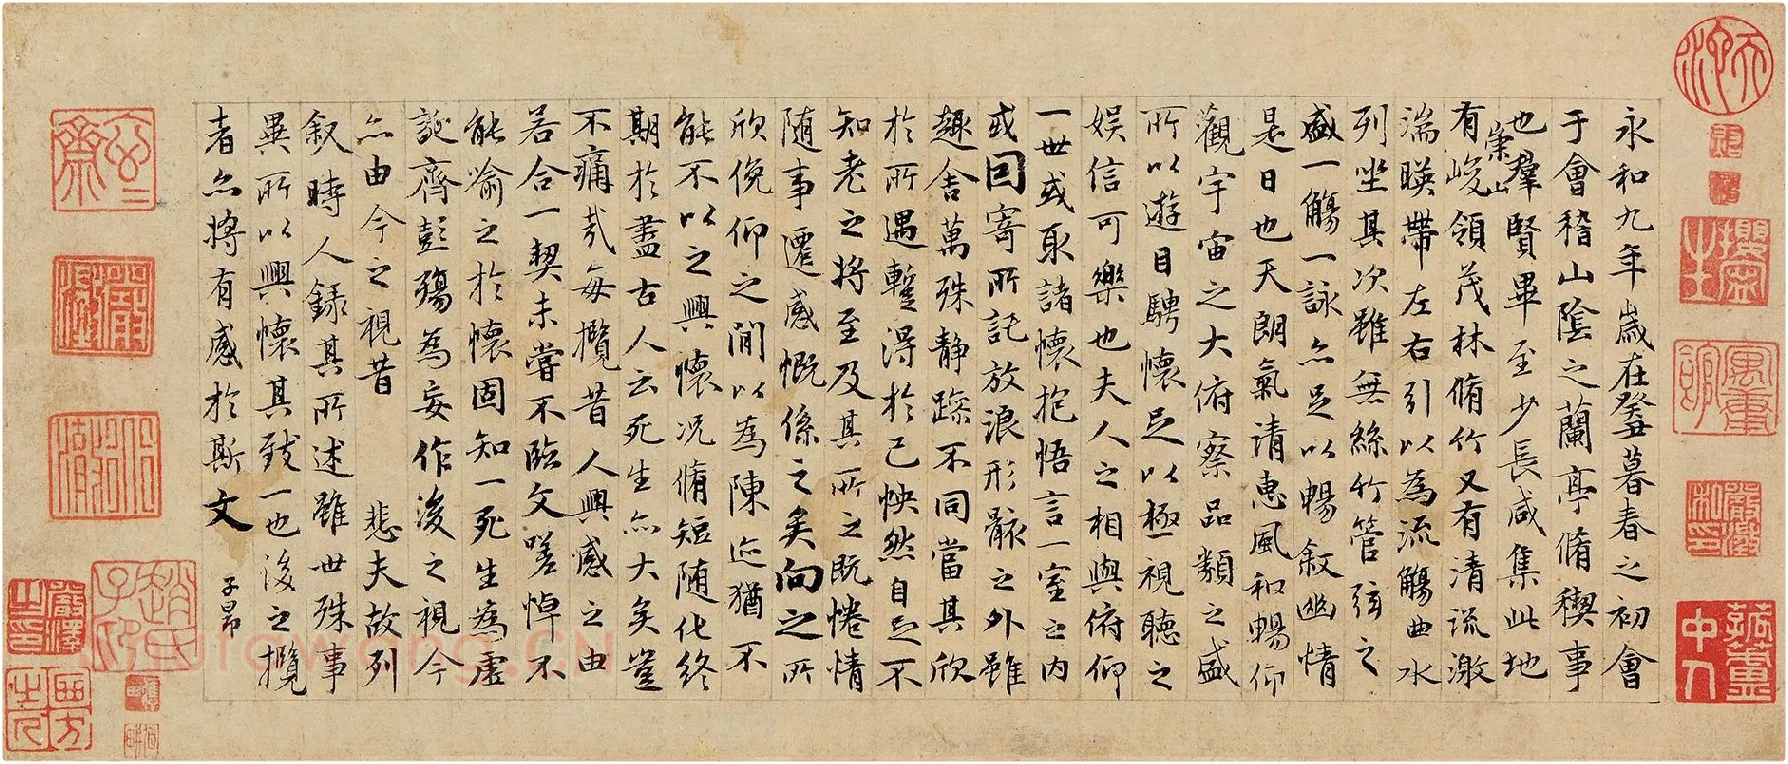 永和九年歲在癸丑暮春之初會
于會稽山陰之蘭亭脩稧事
也羣賢畢至少長咸集此地
有崇山峻領茂林脩竹又有清流激
湍暎帶左右引以為流觴曲水
列坐其次雖無絲竹管弦之
盛一觴一詠亦足以暢敘幽情
是日也天朗氣清惠風和暢仰
觀宇宙之大俯察品類之盛
所以遊目騁懷足以極視聽之
娛信可樂也夫人之相與俯仰
一世或取諸懷抱悟言一室之內
或因寄所託放浪形骸之外雖
趣舍萬殊静躁不同當其欣
於所遇暫得於己怏然自足不
知老之將至及其所之既惓情
随事遷感慨係之矣向之所
欣俛仰之閒以為陳迹猶不
能不以之興懷況脩短随化終
期於盡古人云死生亦大矣豈
不痛哉每攬昔人興感之由
若合一契未嘗不臨文嗟悼不
能喻之於懷固知一死生為虛
誕齊彭殤為妄作後之視今
亦由今之視昔 悲夫故列
敘時人錄其所述雖世殊事
異所以興懷其致一也後之攬
者亦將有感於斯文
子昂
趙氏子昂